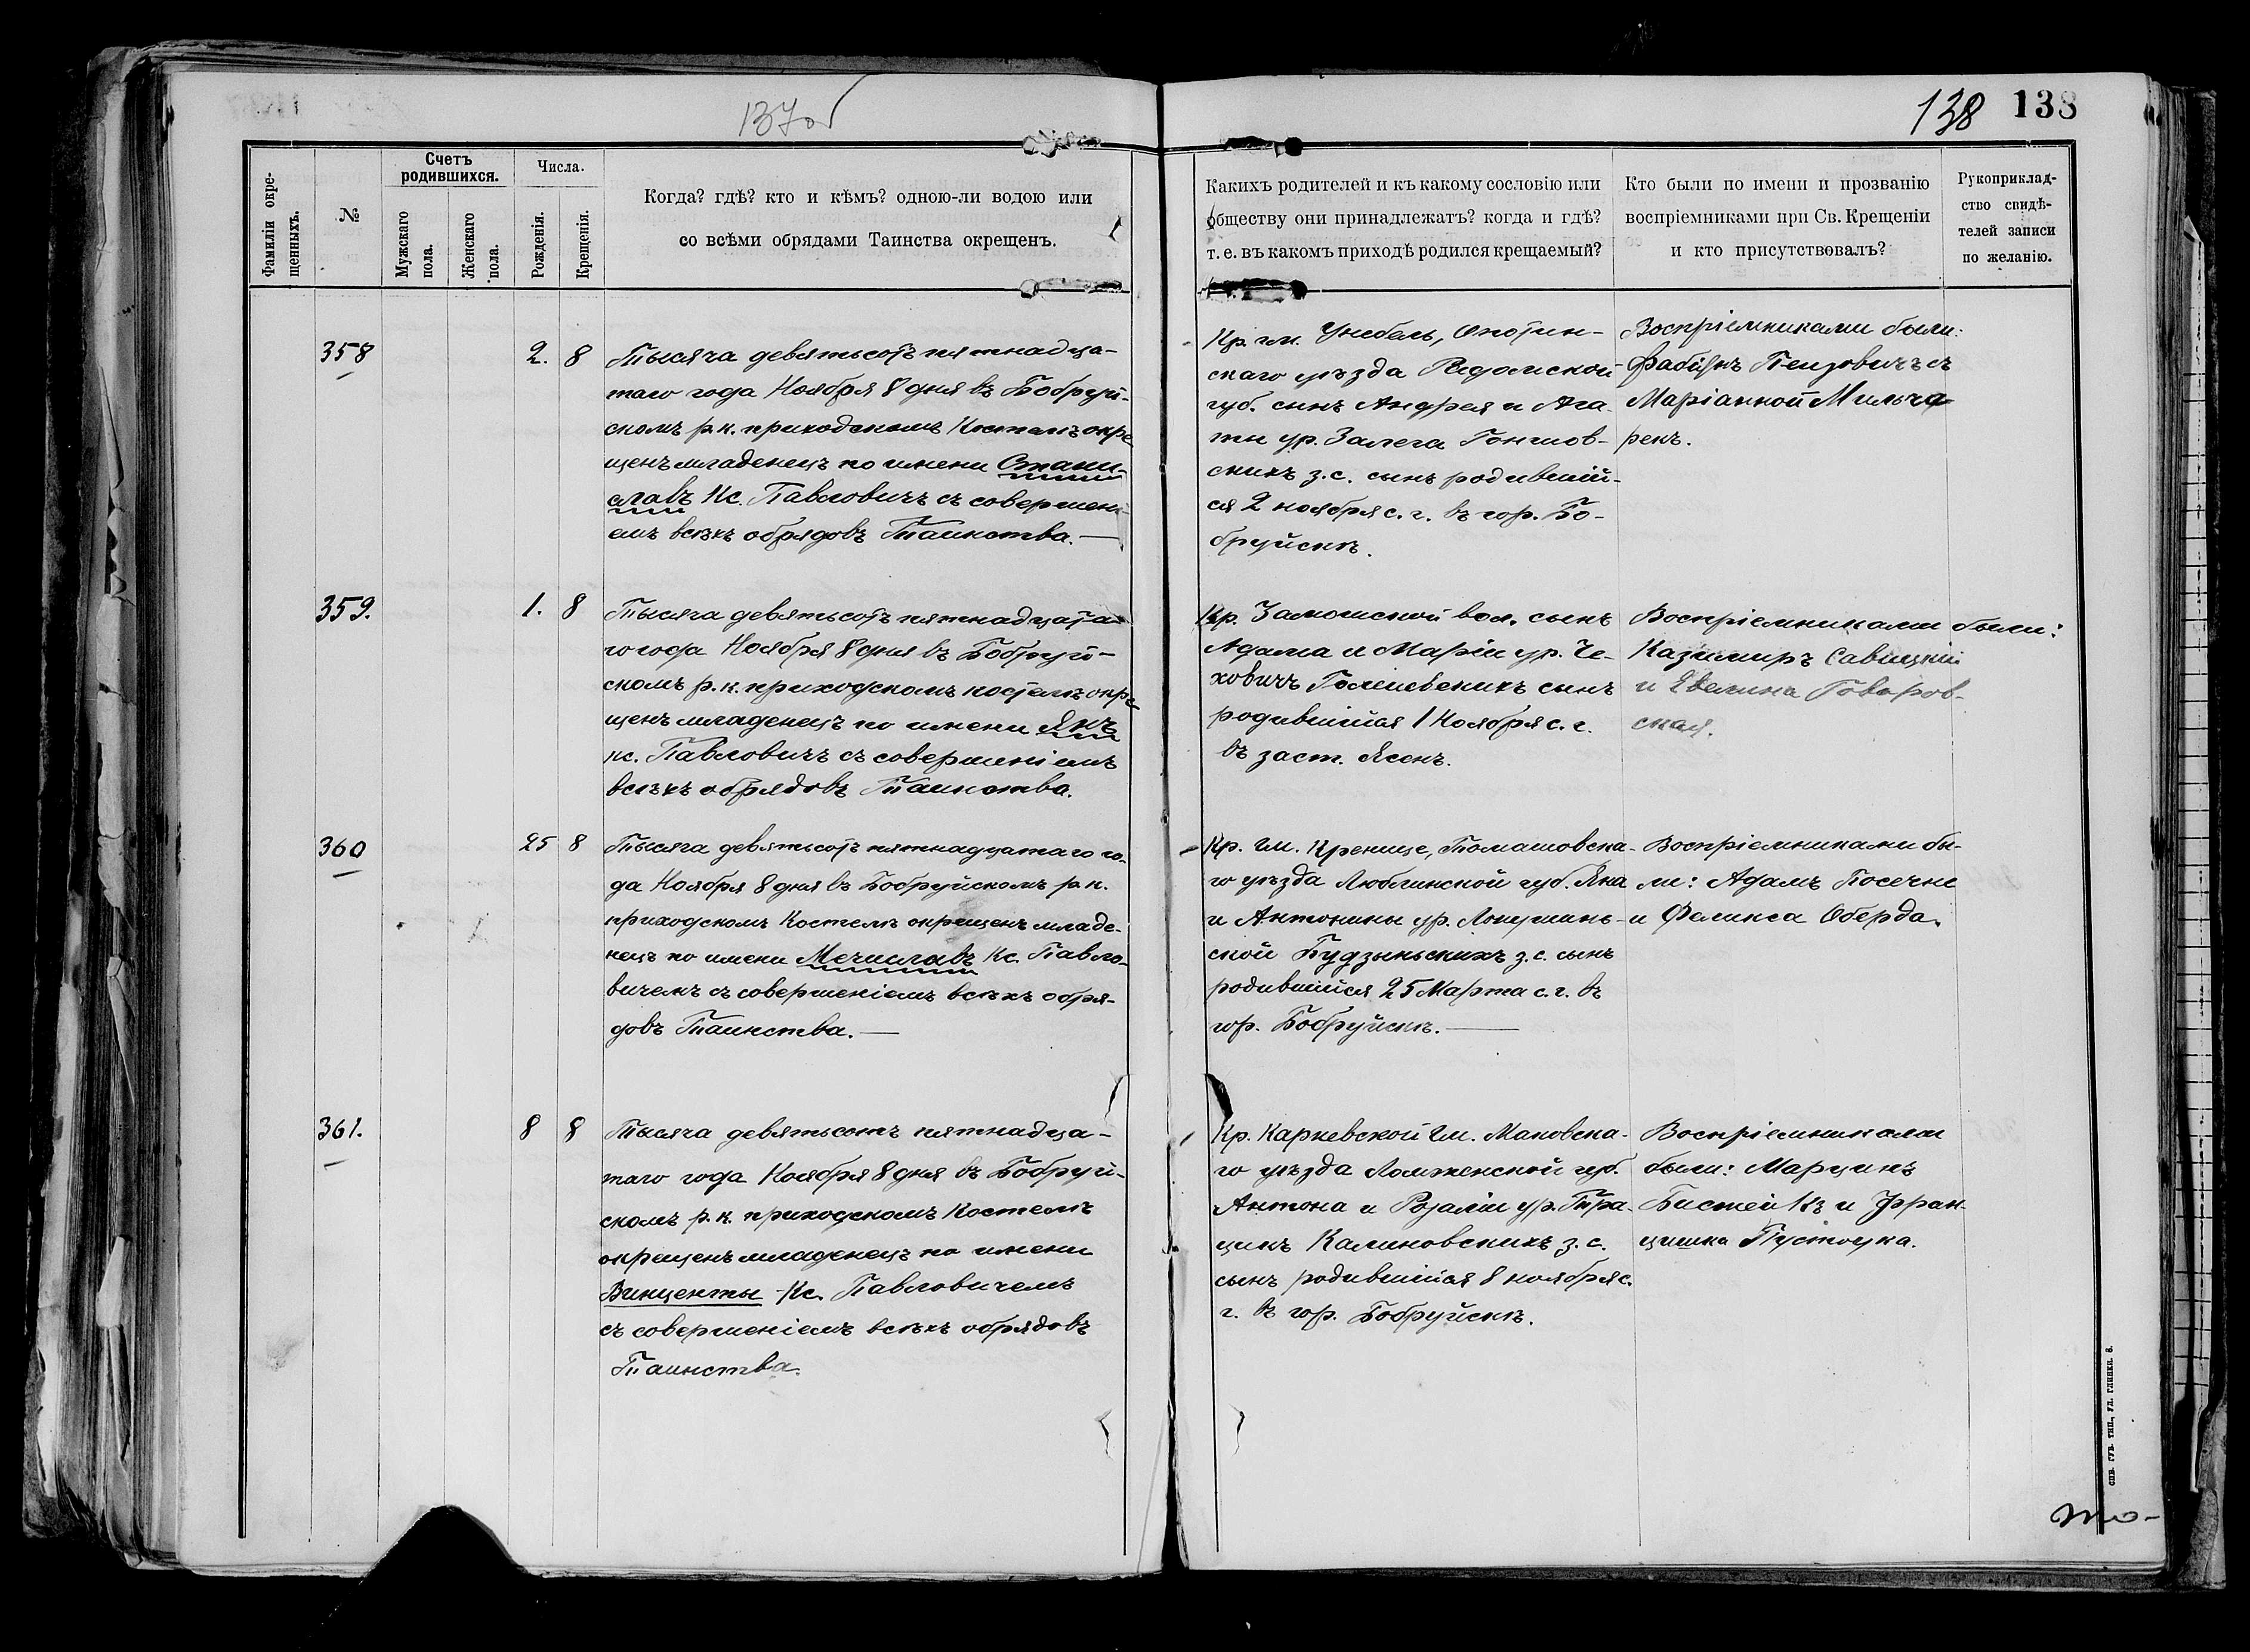 137об
138 138
Фамиліи окре-
щенныхъ.
№
Счетъ
родившихся.
Мужскаго
пола.
Женскаго
пола.
Числа.
Рожденія.
Крещенія.
Когда? гдѣ? кто и кѣмъ? одною-ли водою или
со всѣми обрядами Таинства окрещенъ.
Какихъ родителей и къ какому сословію или
обществу они принадлежатъ? когда и гдѣ?
т. е. въ какомъ приходѣ родился крещаемый?
Кто были по имени и прозванію
воспріемниками при Св. Крещеніи
и кто присутствовалъ?
Рукоприклад-
ство свидѣ-
телей записи
по желанію.
358
2. 8
Тысяча девятьсотъ пятнадца-
таго года Ноября 8 дня въ Бобруй-
скомъ р.к. приходскомъ Костелѣ окре
щенъ младенецъ по имени Стани-
славъ Кс. Павловичъ съ совершені-
емъ всѣхъ обрядовъ Таинства. —
Кр. гм. Унибель, Опотин-
скаго уѣзда Радомской
губ. сынъ Андрея и Ага-
ты ур. Залега Гоншов-
скихъ з.с. сынъ родившій-
ся 2 ноября с. г. въ гор. Бо-
бруйскѣ.
Воспріемниками были:
Фабіянъ съ
Маріанной Мильча
рекъ.
359.
1. 8
Тысяча девятьсотъ пятнадцата-
го года Ноября 8 дня въ Бобруй-
скомъ р.к. приходскомъ костелѣ окре
щенъ младенецъ по имени Янъ
кс. Павловичъ съ совершеніемъ
всѣхъ обрядовъ Таинства.
Кр. Замошской вол. сынъ
Адама и Маріи ур. Че-
ховичъ сынъ
родившійся 1 Ноября с. г.
въ заст. Ясенъ.
Воспріемниками были:
Казимиръ Савицкій
и Эвелина Говоров-
ская.
360
25 8
Тысяча девятьсотъ пятнадцатаго го-
да Ноября 8 дня въ Бобруйскомъ р.к.
приходскомъ Костелѣ окрещенъ младе-
нецъ по имени Мечиславъ Кс. Павло-
вичемъ съ совершеніемъ всѣхъ обря-
довъ Таинства. —
Кр. гм. Креница, Томашовска-
го уѣзда Люблинской губ. Яна
и Антонины ур. Лопушинь-
ской Будзыньскихъ з.с. сынъ
родившійся 25 Марта с. г. въ
гор. Бобруйскѣ. —
Воспріемниками бы-
ли: Адамъ Посечне
и Феликса Оберда.
361.
8 8
Тысяча девятьсотъ пятнадца-
таго года Ноября 8 дня въ Бобруй-
скомъ р.к. приходскомъ Костелѣ
окрещенъ младенецъ по имени
Винценты Кс. Павловичемъ
съ совершеніемъ всѣхъ обрядовъ
Таинства.
Кр. Карневской гм. Маковска-
го уѣзда Ломженской губ.
Антона и Розаліи ур. Гра-
цикъ Калиновскихъ з.с.
сынъ родившійся 8 ноября с.
г. въ гор. Бобруйскѣ.
Воспріемниками
были: Марцинъ
и Фран-
цишка Пустоцка.
СПБ. ГУБ. ТИП., УЛ. ГЛИНКИ. 8.
то-